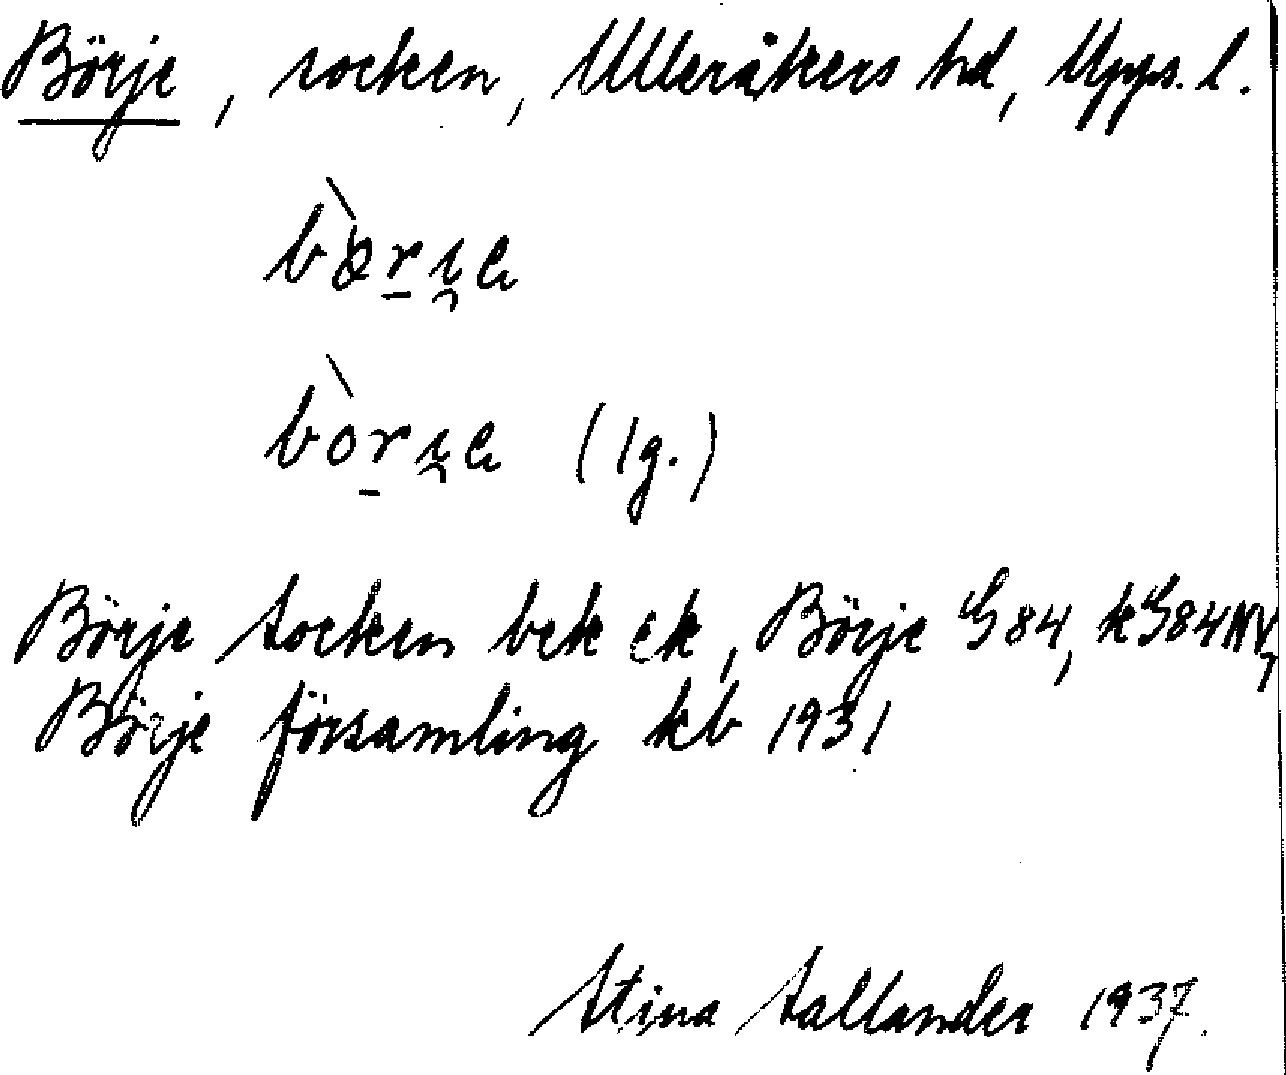 Börje, socken, Ulleråkers hd, Upps. l.
bø̀rɪ̯a
bòrɪ̯a (lg.)
Börje socken bek ek, Börje G 84, kG84NV,
Börje församling kb 1931
Stina Sallander 1937.